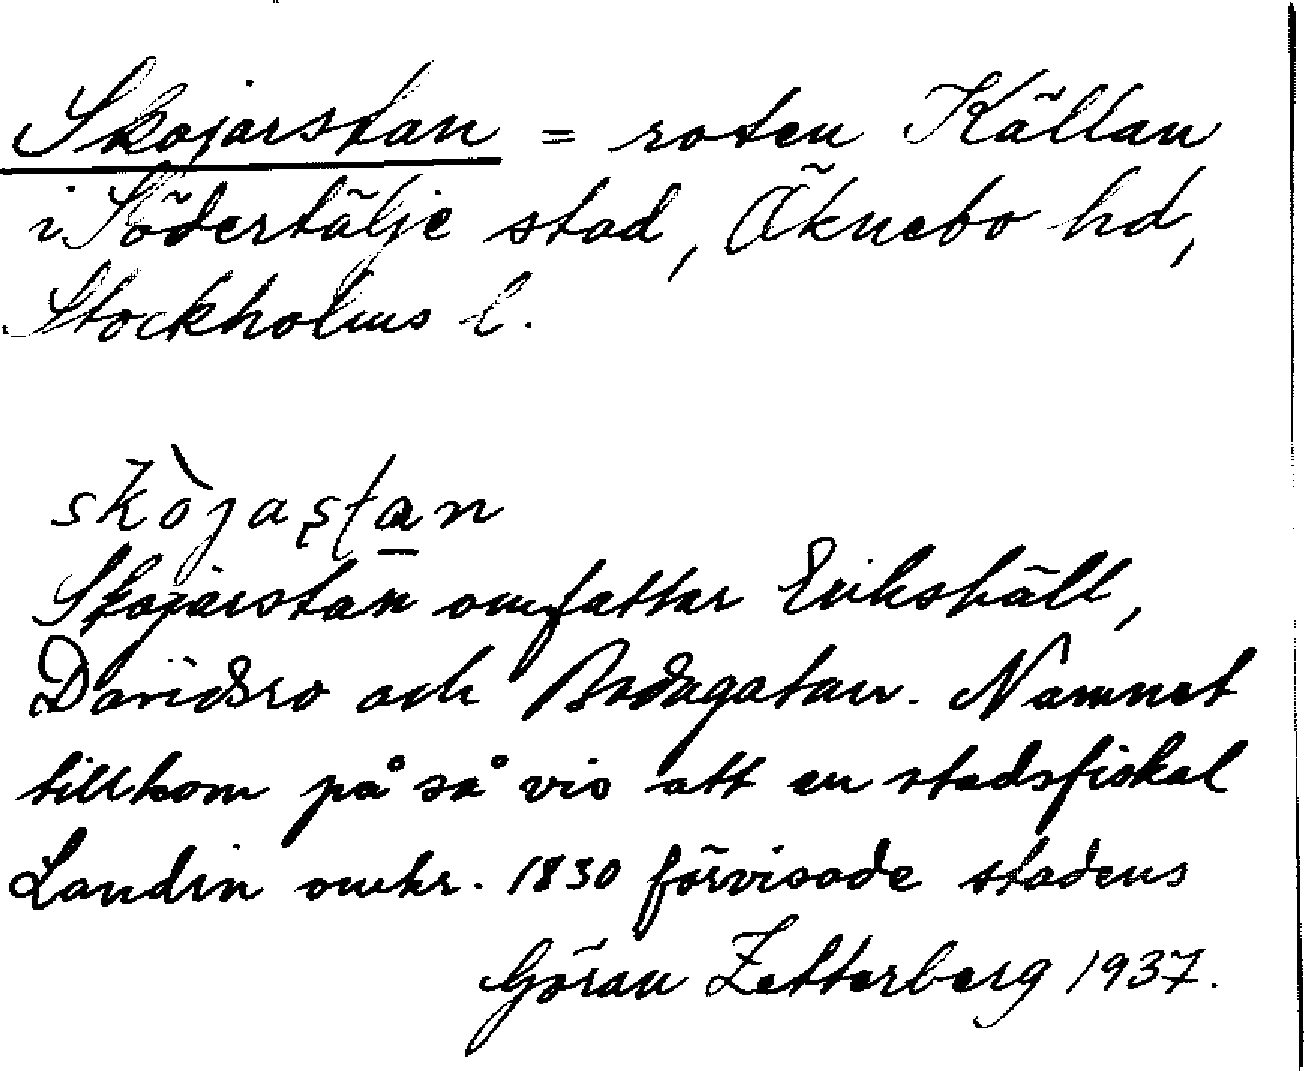 Skojarstan = roten Källan
i Södertälje stad, Öknebo hd,
Stockholms l.
skòjaştan
Skojarstan omfattar Erikshäll,
Davidsro och Bodagatan. Namnet
tillkom på så vis att en stadsfiskal
Landin omkr. 1830 förvisade stadens
Göran Zetterberg 1937.